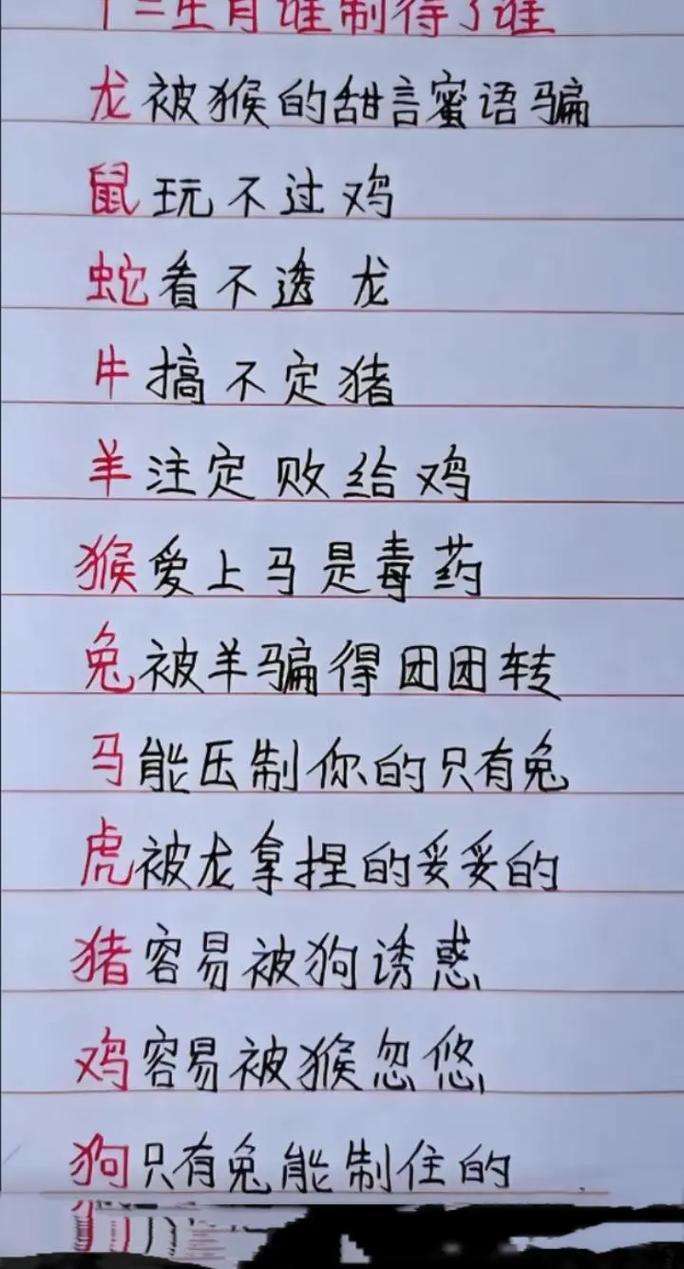 十二生肖谁制得了谁
龙被猴的甜言蜜语骗
鼠玩不过鸡
蛇看不透龙
牛搞不定猪
羊注定败给鸡
猴爱上马是毒药
兔被羊骗得团团转
马能压制你的只有兔
虎被龙拿捏的妥妥的
猪容易被狗诱惑
鸡容易被猴忽悠
狗只有兔能制住的